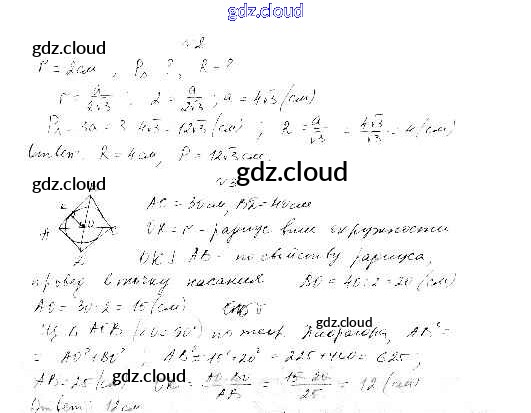 gdz.cloud
№2
gdz.cloud
r = 2см, P₃ - ?, R - ?
r = a/2√3; 2 = a/2√3; a = 4√3 (см)
P₃ = 3a = 3·4√3 = 12√3 (см); R = a/√3 = 4√3/√3 = 4 (см)
Ответ: R = 4см, P = 12√3 см.
gdz.cloud
№3
gdz.cloud
AC = 30 см, BD = 40 см
OK = r - радиус впис окружности
OK ⊥ AB - по свойству радиуса,
провед в точку касания BO = 40:2 = 20 (см)
AO = 30:2 = 15 (см)
gdz.cloud
по теор. Пифагора, AB² =
= AO² + BO²; AB² = 15² + 20² = 225 + 400 = 625,
AB = 25 (см) OK = AO·BO/AB = 15·20/25 = 12 (см)
gdz.cloud
gdz.cloud
Ответ: 12 см